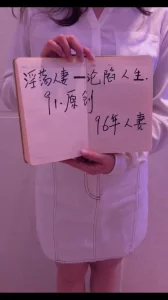 淫荡人妻一论陷人生.
91.原创
96年人妻